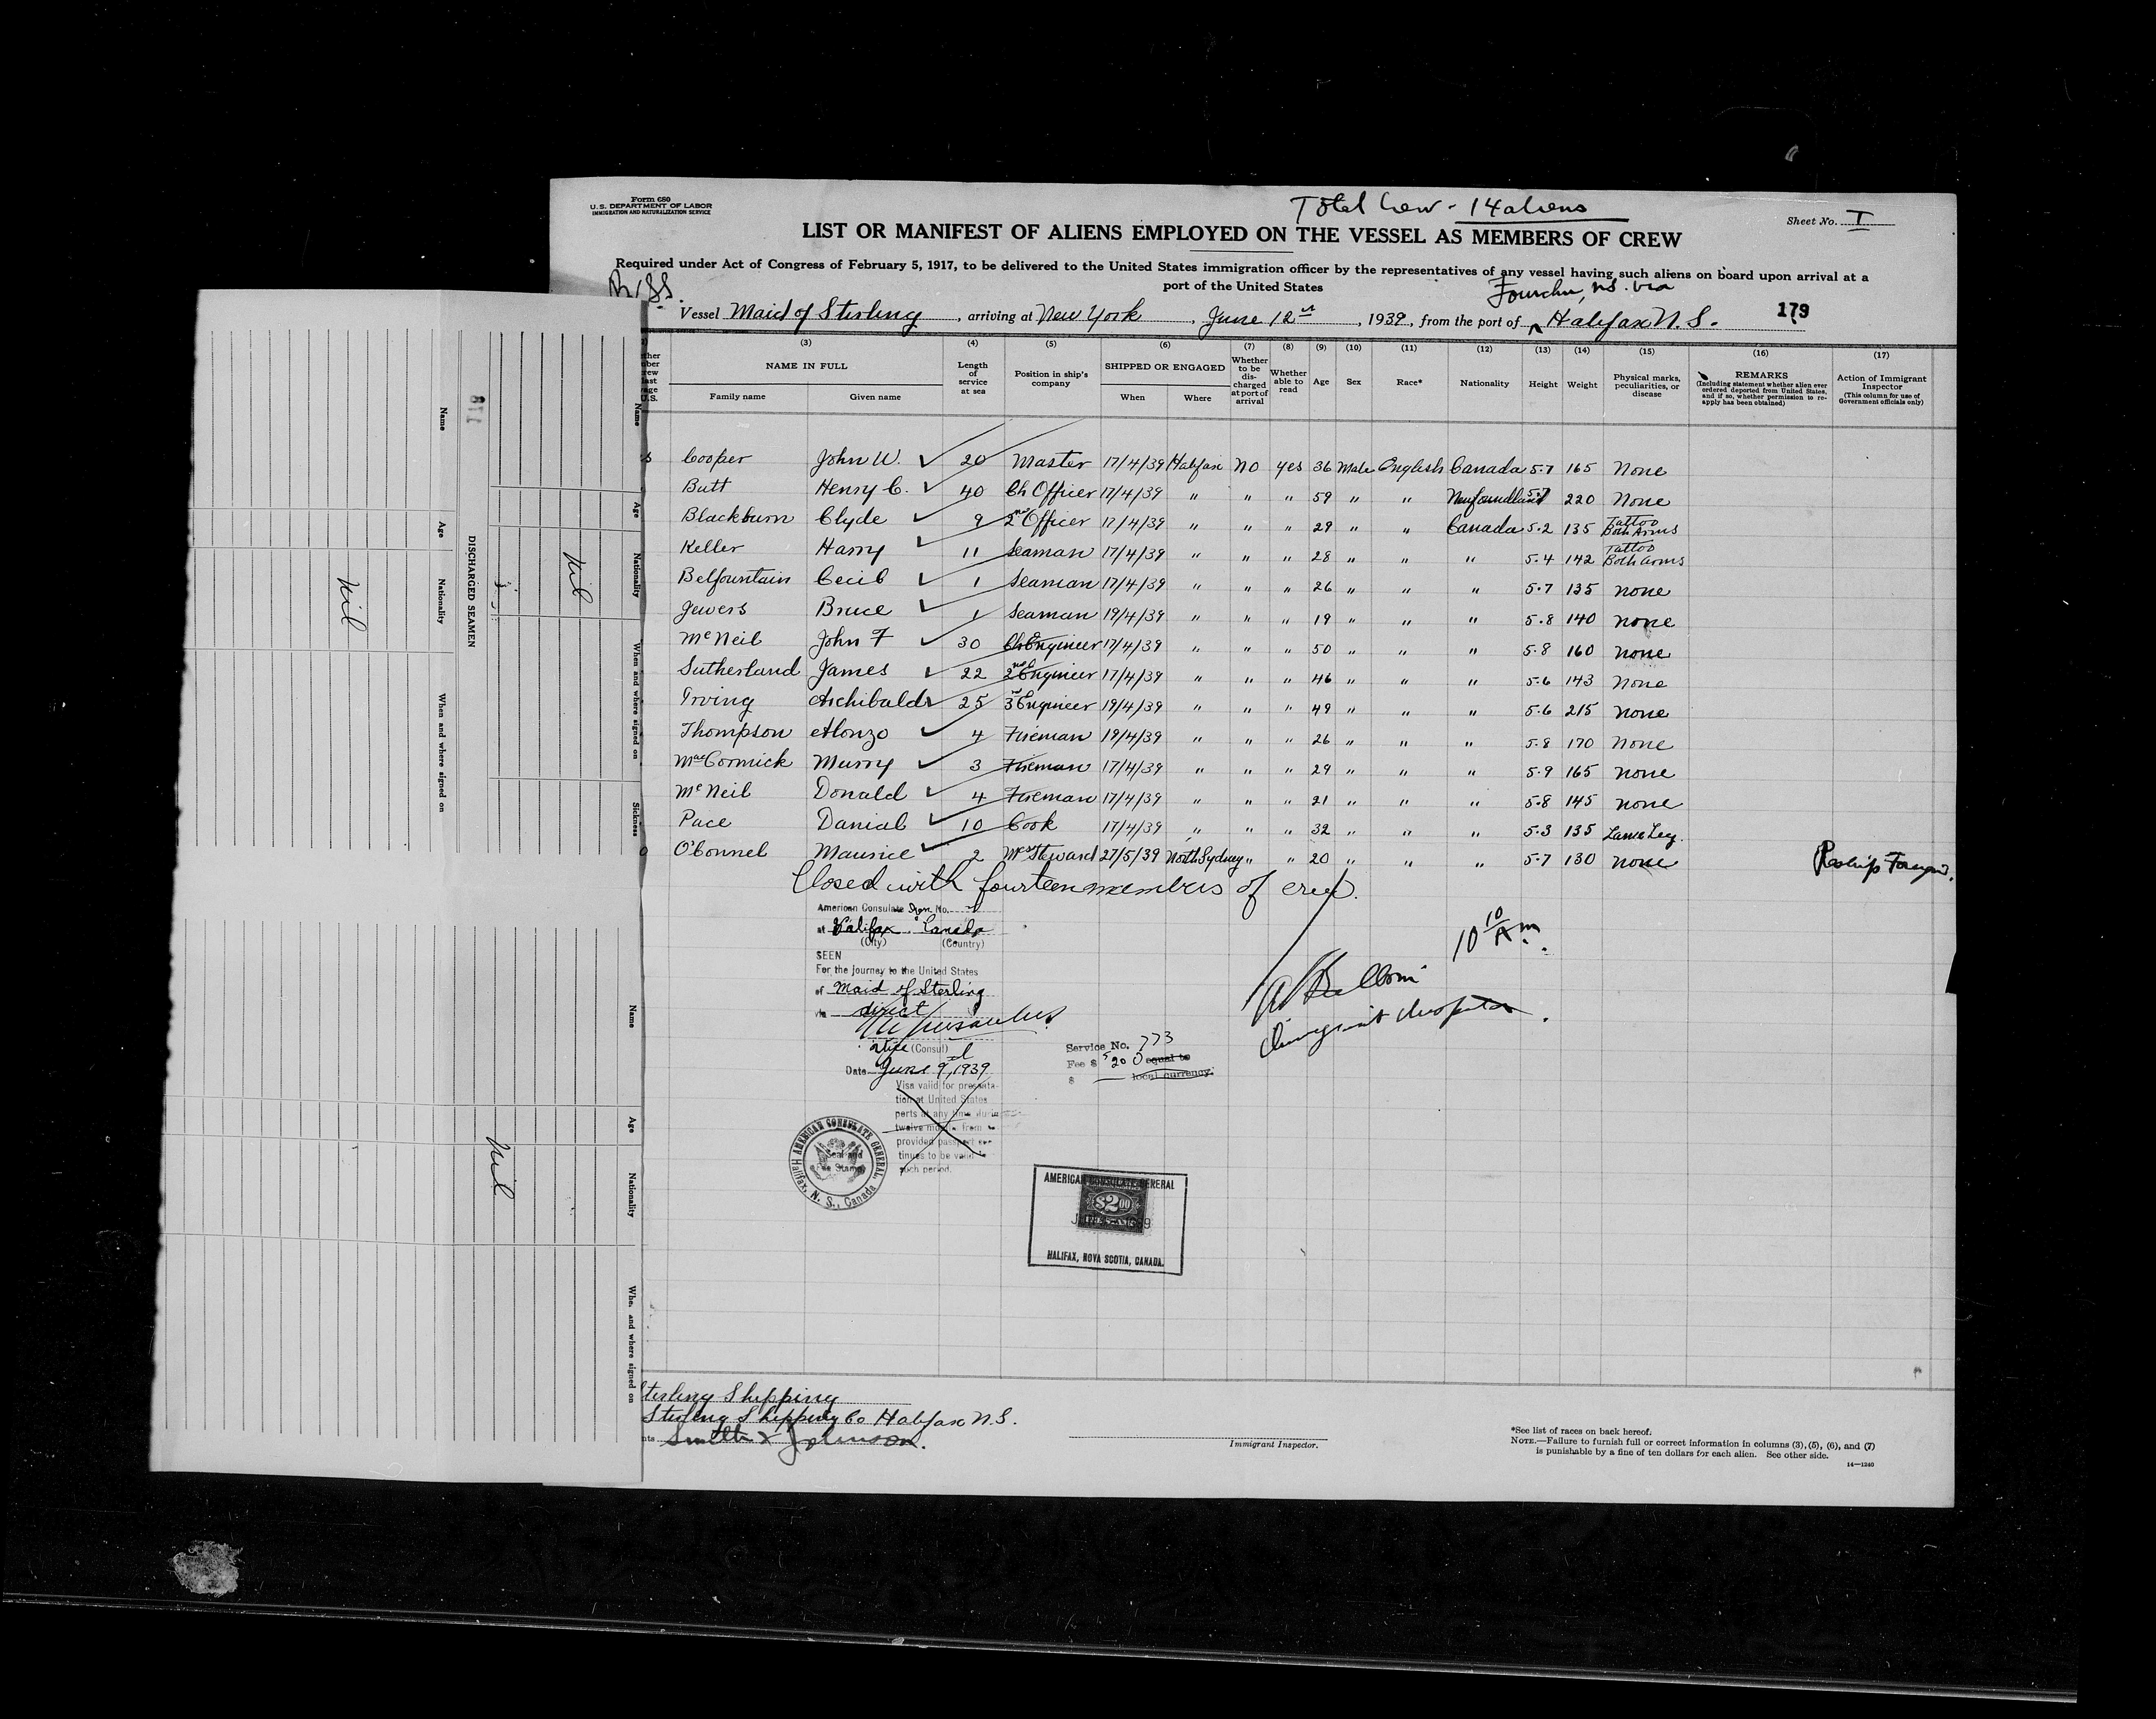 Form 680
U.S. DEPARTMENT OF LABOR
IMMIGRATION AND NATURALIZATION SERVICE
Total Crew - 14 aliens
Sheet No. I
LIST OR MANIFEST OF ALIENS EMPLOYED ON THE VESSEL AS MEMBERS OF CREW
Required under Act of Congress of February 5, 1917, to be delivered to the United States immigration officer by the representatives of any vessel having such aliens on board upon arrival at a
port of the United States
Br/SS. Fourchu, N.S. via
Vessel Maid of Sterling, arriving at New York, June 12th, 1939, from the port of Halifax N.S. 179
(3) (4) (5) (6) (7) (8) (9) (10) (11) (12) (13) (14) (15) (16) (17)
NAME IN FULL Family name Given name
Length of service at sea
Position in ship's company
SHIPPED OR ENGAGED When Where
Whether to be discharged at port of arrival
Whether able to read
Age Sex Race* Nationality Height Weight
Physical marks, peculiarities, or disease
REMARKS
(Including statement whether alien ever ordered deported from United States, and if so, whether permission to reapply has been obtained)
Action of Immigrant Inspector
(This column for use of Government officials only)
Cooper John W. 20 Master 17/4/39 Halifax No yes 36 Male English Canada 5.7 165 None
Butt Henry C. 40 Ch Officer 17/4/39 " " " 59 " " Newfoundland 5.7 220 None
Blackburn Clyde 9 2nd Officer 17/4/39 " " " 29 " " Canada 5.2 135 Tattoo Both Arms
Keller Harry 11 Seaman 17/4/39 " " " 28 " " " 5.4 142 Tattoo Both Arms
Belfountain Cecil 1 Seaman 17/4/39 " " " 26 " " " 5.7 135 none
Jewers Bruce 1 Seaman 19/4/39 " " " 19 " " " 5.8 140 none
McNeil John F 30 Ch Engineer 17/4/39 " " " 50 " " " 5.8 160 none
Sutherland James 22 2nd Engineer 17/4/39 " " " 46 " " " 5.6 143 None
Irving Archibald 25 3rd Engineer 19/4/39 " " " 49 " " " 5.6 215 none
Thompson Alonzo 4 Fireman 19/4/39 " " " 26 " " " 5.8 170 None
MacCormick Murry 3 Fireman 17/4/39 " " " 29 " " " 5.9 165 none
McNeil Donald 4 Fireman 17/4/39 " " " 21 " " " 5.8 145 none
Pace Danial 10 Cook 17/4/39 " " " 32 " " " 5.3 135 Lame Leg.
O'Connel Maurice 2 Steward 27/5/39 North Sydney " " 20 " " " 5.7 130 none Reship Foreign.
Closed with fourteen members of crew.
American Consulate Gen. No.
at Halifax Canada
(City) (Country)
SEEN
For the journey to the United States
of Maid of Sterling
via direct
Vice (Consul)
Date June 9, 1939
Visa valid for presenta-
tion at United States
ports at any time during
twelve months from
provided passport con-
tinues to be valid
such period.
10 10 A m.
Immigrant Inspector.
Service No. 773
Fee $ 2 00 equal to
$ local currency.
AMERICAN CONSULATE GENERAL
Halifax, N. S., Canada
Seal and
Fee Stamp
AMERICAN CONSULATE GENERAL
$2.00
HALIFAX, NOVA SCOTIA, CANADA.
Sterling Shipping
Sterling Shipping Co Halifax N.S.
Smith & Johnson.
Immigrant Inspector.
*See list of races on back hereof.
NOTE.—Failure to furnish full or correct information in columns (3), (5), (6), and (7)
is punishable by a fine of ten dollars for each alien. See other side.
14—1240
DISCHARGED SEAMEN
Name Age Nationality When and where signed on
Nil
Name Age Nationality When and where signed on Sickness
Nil
Name Age Nationality When and where signed on
Nil